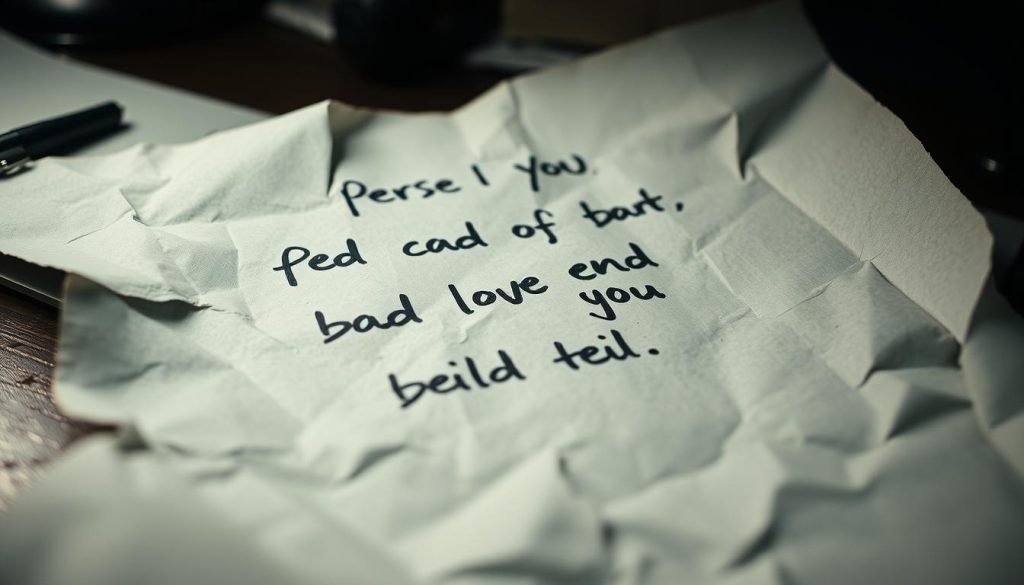 Perse I you.
Ped cad of bart,
bad love end
you
beild teil.